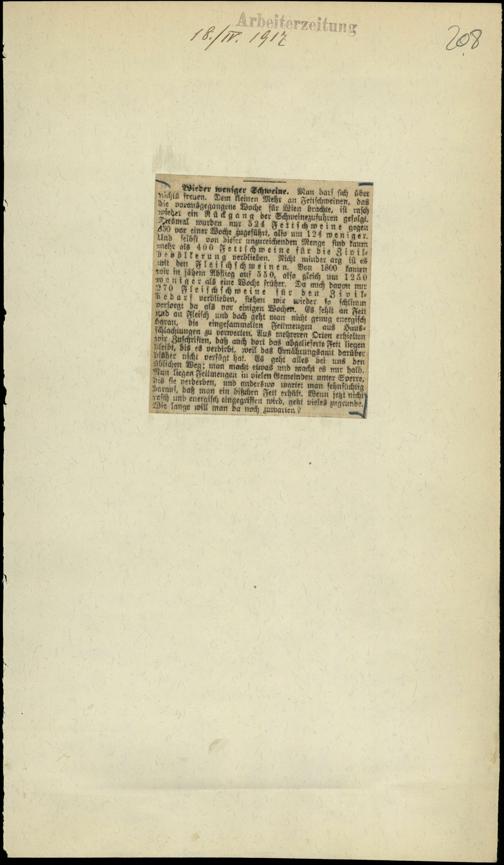 Arbeiterzeitung
18./IV. 1917
208
Wieder weniger Schweine. Man darf sich über
nichts freuen. Dem kleinen Mehr an Fettschweinen, das
die vorausgegangene Woche für Wien brachte, ist rasch
wieder ein Rückgang der Schweinezufuhren gefolgt.
Diesmal wurden nur 524 Fettschweine gegen
650 vor einer Woche zugeführt, also um 124 weniger.
Und selbst von dieser unzureichenden Menge sind kaum
mehr als 400 Fettschweine für die Zivil-
bevölkerung verblieben. Nicht minder arg ist es
mit den Fleischschweinen. Von 1800 kamen
wir in jähem Abstieg auf 550, also gleich um 1250
weniger als eine Woche früher. Da auch davon nur
270 Fleischschweine für den Zivil-
bedarf verblieben, stehen wir wieder so schlimm
versorgt da als vor einigen Wochen. Es fehlt an Fett
und an Fleisch und doch geht man nicht genug energisch
daran, die eingesammelten Fettmengen aus Haus-
schlachtungen zu verwerten. Aus mehreren Orten erhielten
wir Zuschriften, daß auch dort das abgelieferte Fett liegen
bleibt, bis es verdirbt, weil das Ernährungsamt darüber
bisher nicht verfügt hat. Es geht alles bei uns den
üblichen Weg: man macht etwas und macht es nur halb.
Nun liegen Fettmengen in vielen Gemeinden unter Sperre,
bis sie verderben, und anderswo wartet man sehnsüchtig
darauf, daß man ein bißchen Fett erhält. Wenn jetzt nicht
rasch und energisch eingegriffen wird, geht vieles zugrunde.
Wie lange will man da noch zuwarten?